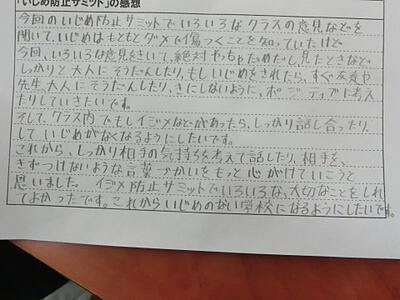 「いじめ防止サミット」の感想
今回のいじめ防止サミットでいろいろなクラスの意見などを
聞いて、いじめはもともとダメで傷つくことを知っていたけど
今回、いろいろな意見をきいて、絶対やっちゃだめだし、見たときなど
しっかりと大人にそうだんしたり、もしいじめをされたら、すぐ友達や
先生、大人にそうだんしたり、きにしないように、ポジティブに考え
たりしていきたいです。
そして、クラス内でもしイジメなどがあったら、しっかり話し合ったり、
していじめがなくなるようにしたいです。
これから、しっかり相手の気持ちを考えて話したり、相手を、
きずつけないような言葉づかいをもっと心がけていこうと
思いました。イジメ防止サミットでいろいろな、大切なことをしれ
てよかったです。これからいじめのない学校になるようにしたいです。